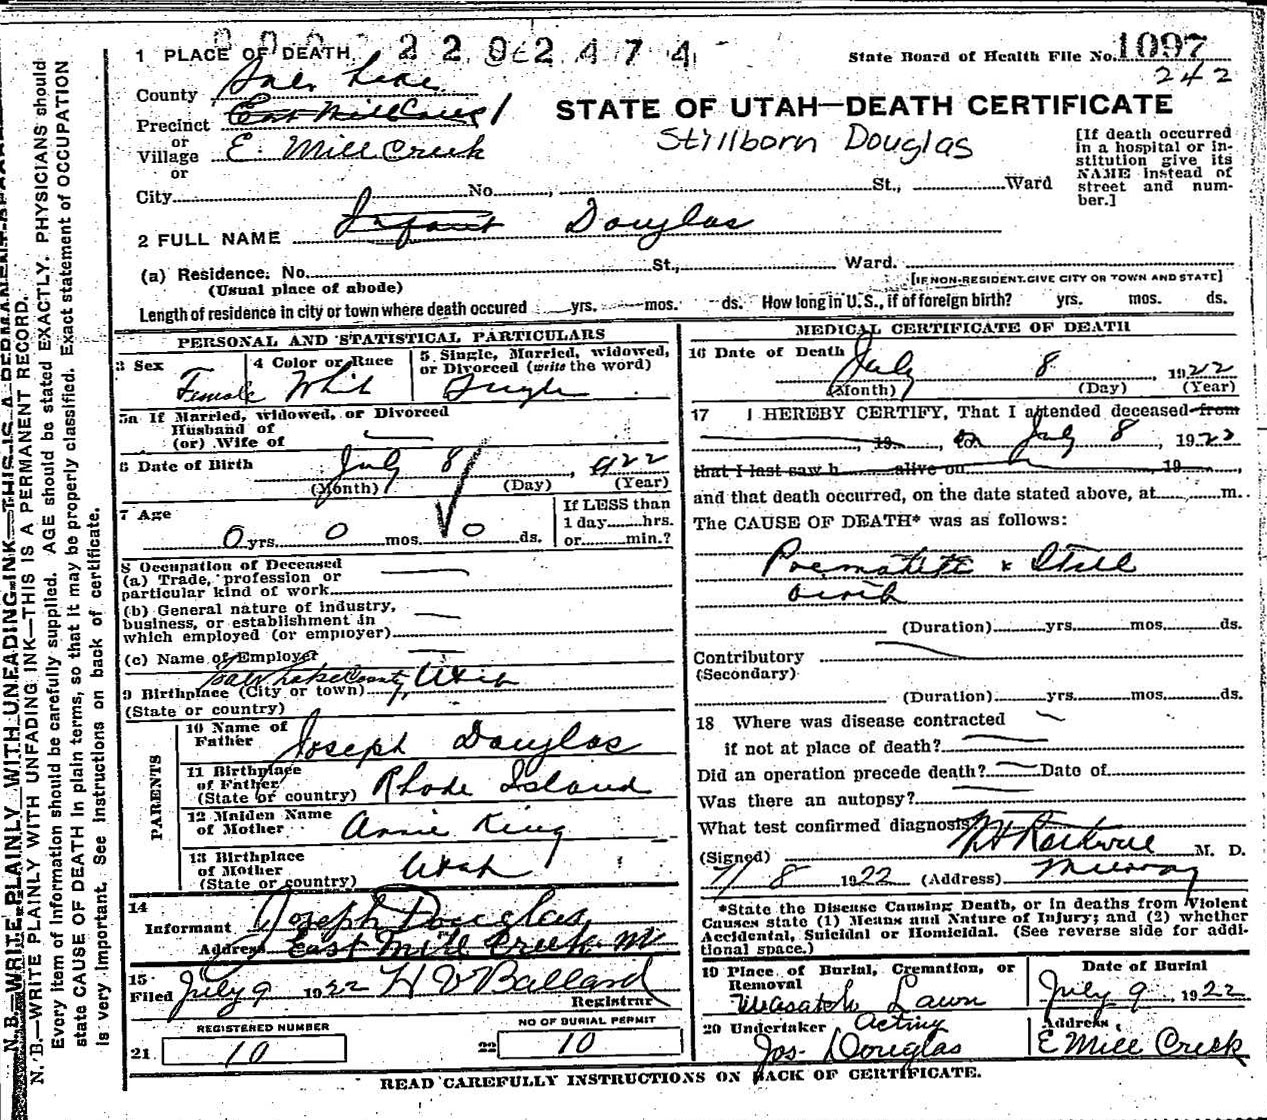 N. B.—WRITE PLAINLY WITH UNFADING INK—THIS IS A PERMANENT RECORD.
N. B.—WRITE PLAINLY WITH UNFADING INK—THIS IS A PERMANENT RECORD.
Every item of information should be carefully supplied. AGE should be stated EXACTLY. PHYSICIANS should
state CAUSE OF DEATH in plain terms, so that it may be properly classified. Exact statement of OCCUPATION
is very important. See instructions on back of certificate.
1 PLACE OF DEATH
State Board of Health File No. 1097
242
County Salt Lake
Precinct East Mill Creek 1
or
Village E. Mill Creek
or
STATE OF UTAH—DEATH CERTIFICATE
Stillborn Douglas
[If death occurred
in a hospital or in-
stitution give its
NAME instead of
street and num-
ber.]
City No. St., Ward
2 FULL NAME Infant Douglas
(a) Residence. No. St., Ward.
(Usual place of abode) [IF NON-RESIDENT GIVE CITY OR TOWN AND STATE]
Length of residence in city or town where death occured yrs. mos. ds. How long in U.S., if of foreign birth? yrs. mos. ds.
PERSONAL AND STATISTICAL PARTICULARS
3 Sex Female
4 Color or Race Whit
5. Single, Married, widowed,
or Divorced (write the word)
Single
5a If Married, widowed, or Divorced
Husband of
(or) Wife of
6 Date of Birth July 8, 1922
(Month) (Day) (Year)
7 Age
0 yrs. 0 mos. 0 ds.
If LESS than
1 day hrs.
or min.?
8 Occupation of Deceased
(a) Trade, profession or
particular kind of work
(b) General nature of industry,
business, or establishment in
which employed (or employer)
(c) Name of Employer
Salt Lake County, Utah
9 Birthplace (City or town)
(State or country)
PARENTS
10 Name of
Father Joseph Douglas
11 Birthplace
of Father Rhode Island
(State or country)
12 Maiden Name
of Mother Annie King
13 Birthplace
of Mother Utah
(State or country)
14
Informant Joseph Douglas
Address East Mill Creek
15
Filed July 9 1922 H V Ballard
Registrar
REGISTERED NUMBER
21 10
NO OF BURIAL PERMIT
22 10
MEDICAL CERTIFICATE OF DEATH
16 Date of Death July 8 1922
(Month) (Day) (Year)
17 I HEREBY CERTIFY, That I attended deceased from
19 , on July 8, 1922
that I last saw h alive on , 19 ,
and that death occurred, on the date stated above, at m.
The CAUSE OF DEATH* was as follows:
Premature & Still
birth
(Duration) yrs. mos. ds.
Contributory
(Secondary)
(Duration) yrs. mos. ds.
18 Where was disease contracted
if not at place of death?
Did an operation precede death? Date of
Was there an autopsy?
What test confirmed diagnosis?
(Signed) M. D.
7/8 1922 (Address) Murray
*State the Disease Causing Death, or in deaths from Violent
Causes state (1) Means and Nature of Injury; and (2) whether
Accidental, Suicidal or Homicidal. (See reverse side for addi-
tional space.)
19 Place of Burial, Cremation, or
Removal
Wasatch Lawn
Date of Burial
July 9, 1922
20 Undertaker Acting
Jos. Douglas
Address
E Mill Creek
READ CAREFULLY INSTRUCTIONS ON BACK OF CERTIFICATE.